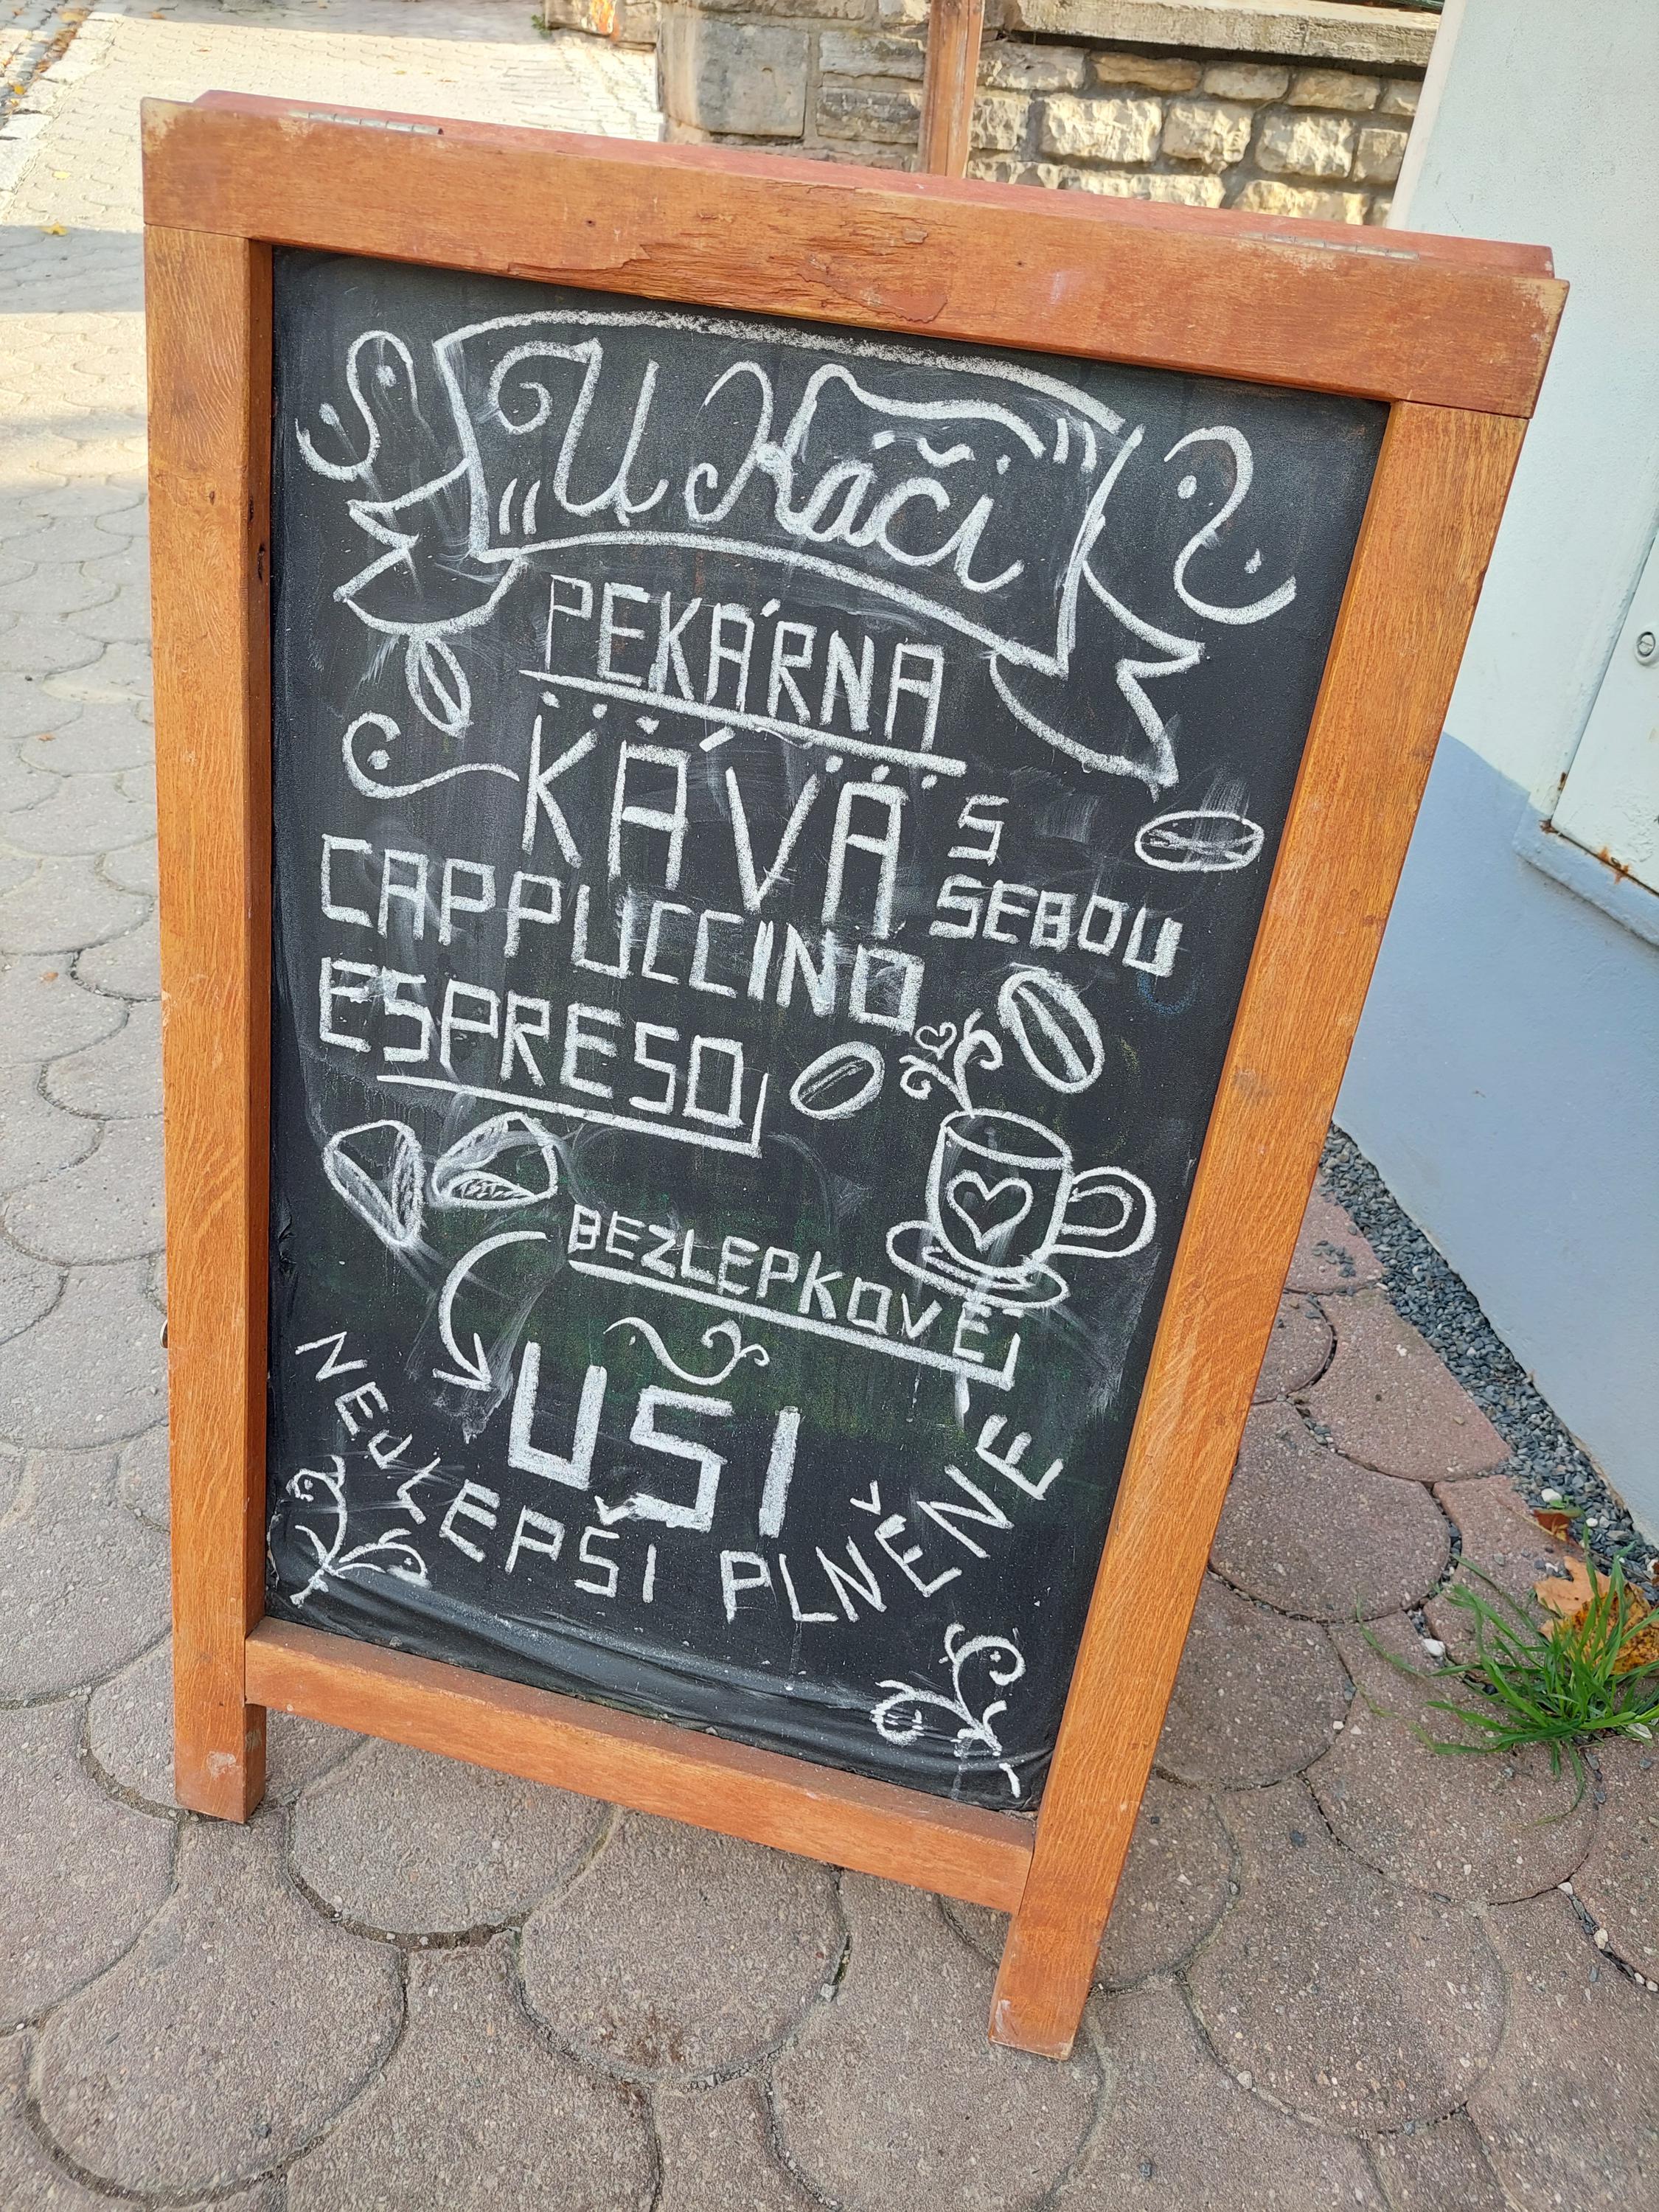 U Káči
PEKÁRNA
KÁVA S
SEBOU
CAPPUCCINO
ESPRESO
BEZLEPKOVÉ
UŠI
NEJLEPŠI PLNĚNE